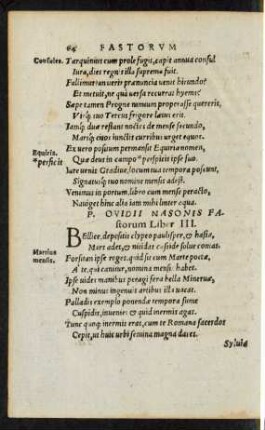 64 FASTORVM
Consules. Tarquinius cum prole fugit, capit annua consul
Iura, dies regnis illa suprema fuit.
Fallimur? an veris prænuncia venit hirundo?
Et metuit, ne quà versa recurrat hyems?
Sæpe tamen Progne nimium properasse quereris,
Virq; tuo Tereus frigore lætus erit.
Iamq; duæ restant noctes de mense secundo,
Marsq; citos iunctis curribus urget equos.
Equiria. Ex uero positum permansit Equiria nomen,
*perficit Quæ deus in campo *perspicit ipse suo.
Iure uenis Gradiue, locum tua tempora poscunt,
Signatusq; tuo nomine mensis adest.
Venimus in portum, libro cum mense peracto,
Nauiget hinc alia iam mihi linter aqua.
P. OVIDII NASONIS FA-
storum Liber III.
Bellice, depositis clypeo paulisper, & hasta,
Mars ades, & nitidas casside solue comas.
Martius Forsitan ipse roges, quid sit cum Marte poetæ,
mensis. A te, qui canitur, nomina mensis habet.
Ipse uides manibus peragi fera bella Mineruæ,
Non minus ingenuis artibus illa uacat.
Palladis exemplo ponendæ tempora sume
Cuspidis, inuenies & quid inermis agas.
Tunc quoq; inermis eras, cum te Romana sacerdos
Cepit, ut huic urbi semina magna dares.
Syluia